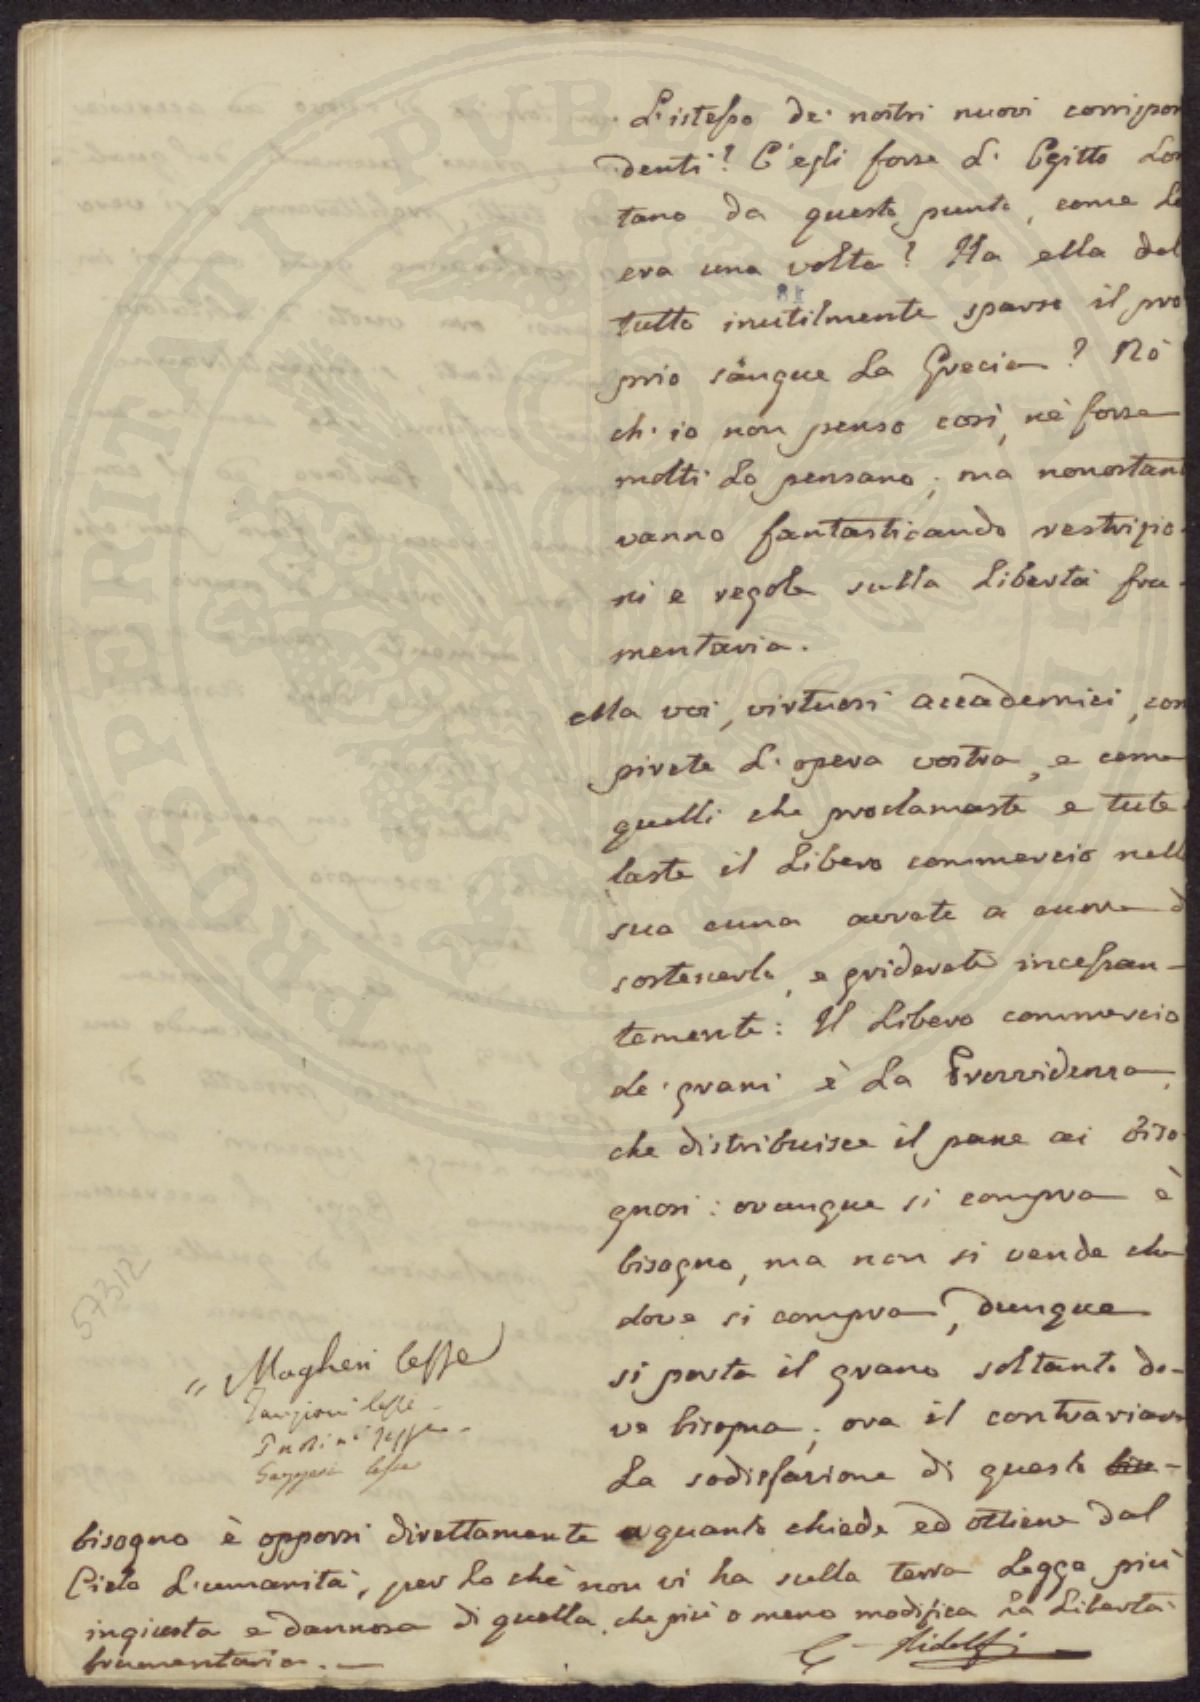 L'istesso de' nostri nuovi corrispon
denti? È egli forse l'Egitto lon
tano da questo punto, come lo
era una volta? Ha ella del
tutto inutilmente sparso il pro
prio sangue la Grecia? Nò
ch'io non penso così, nè forse
molti lo pensano; ma nonostante
vanno fantasticando restrizio-
ni e regole sulla libertà fru-
mentaria.
Ma voi, virtuosi accademici, com
pirete l'opera vostra, e come
quelli che proclamaste e tute
laste il libero commercio nella
sua cuna avrete a cuore di
sostenerlo, e griderete incessan-
temente: Il libero commercio
de' grani è la Provvidenza,
che distribuisce il pane ai biso
gnosi: ovunque si compra è
bisogno, ma non si vende che
dove si compra, dunque
si porta il grano soltanto do-
ve bisogna; ora il contrariare
la sodisfazione di questo bis-
bisogno è opporsi direttamente a quanto chiede ed ottiene dal
Cielo l'umanità, per lo chè non vi ha sulla terra legge più
ingiusta e dannosa di quella, che più o meno modifica la libertà
frumentaria. —
C. Ridolfi
" Magheri lesse
Tangioni lesse
lesse
Gazzeri lesse
57312
PROSPERITATI PVBLICAE